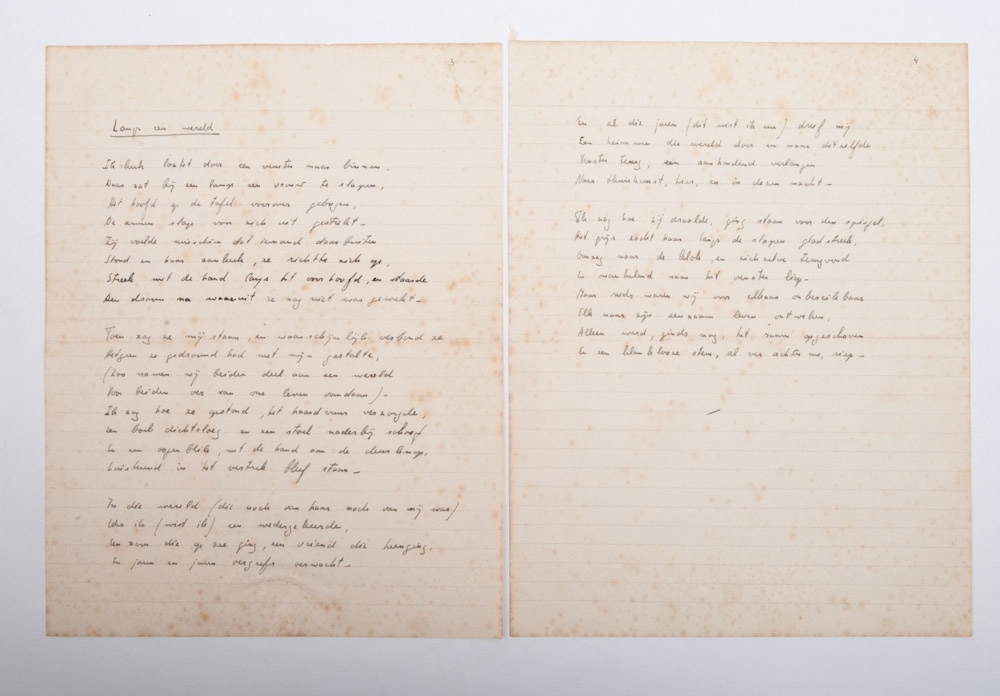 3
Langs een wereld
Ik keek laatst door een venster naar binnen.
Daar zat bij een lamp een vrouw te slapen,
Het hoofd op de tafel voorover gebogen,
De armen slap voor zich uit gestrekt —
Zij voelde misschien dat iemand daarbuiten
Stond en haar aankeek, ze richtte zich op,
Streek met de hand langs het voorhoofd en staarde
Den droom na waaruit ze nog niet was gewekt —
Toen zag ze mij staan, en waarschijnlijk verbond ze
Hetgeen ze gedroomd had met mijn gestalte,
(Zoo namen wij beiden deel aan een wereld
Voor beiden ver van ons leven vandaan) —
Ik zag hoe ze opstond, het haardvuur verzorgde,
Een boek dichtsloeg en een stoel naderbij schoof
En een oogenblik, met de hand aan de deurknop,
Luisterend in het vertrek bleef staan —
In die wereld (die noch van haar noch van mij was)
Was ik (wist ik) een wedergekeerde,
Een zoon die op zee ging, een vriend die heenging,
En jaren en jaren vergeefs verwacht —
4
En al die jaren (dit wist ik nu) dreef mij
Een heimwee die wereld door en naar ditzelfde
Venster terug, een aanhoudend verlangen
Naar thuiskomst, hier, en in dezen nacht —
Ik zag hoe zij draalde, ging staan voor den spiegel,
Het grijs zacht haar langs de slapen gladstreek,
Omzag naar de klok, en zich
naar het venster liep —
Maar reeds waren wij voor elkaar onbereikbaar
Elk naar zijn eenzaam leven ontweken,
Alleen werd, ginds nog, het raam opgeschoven
En een klanklooze stem, al ver achter me, riep —